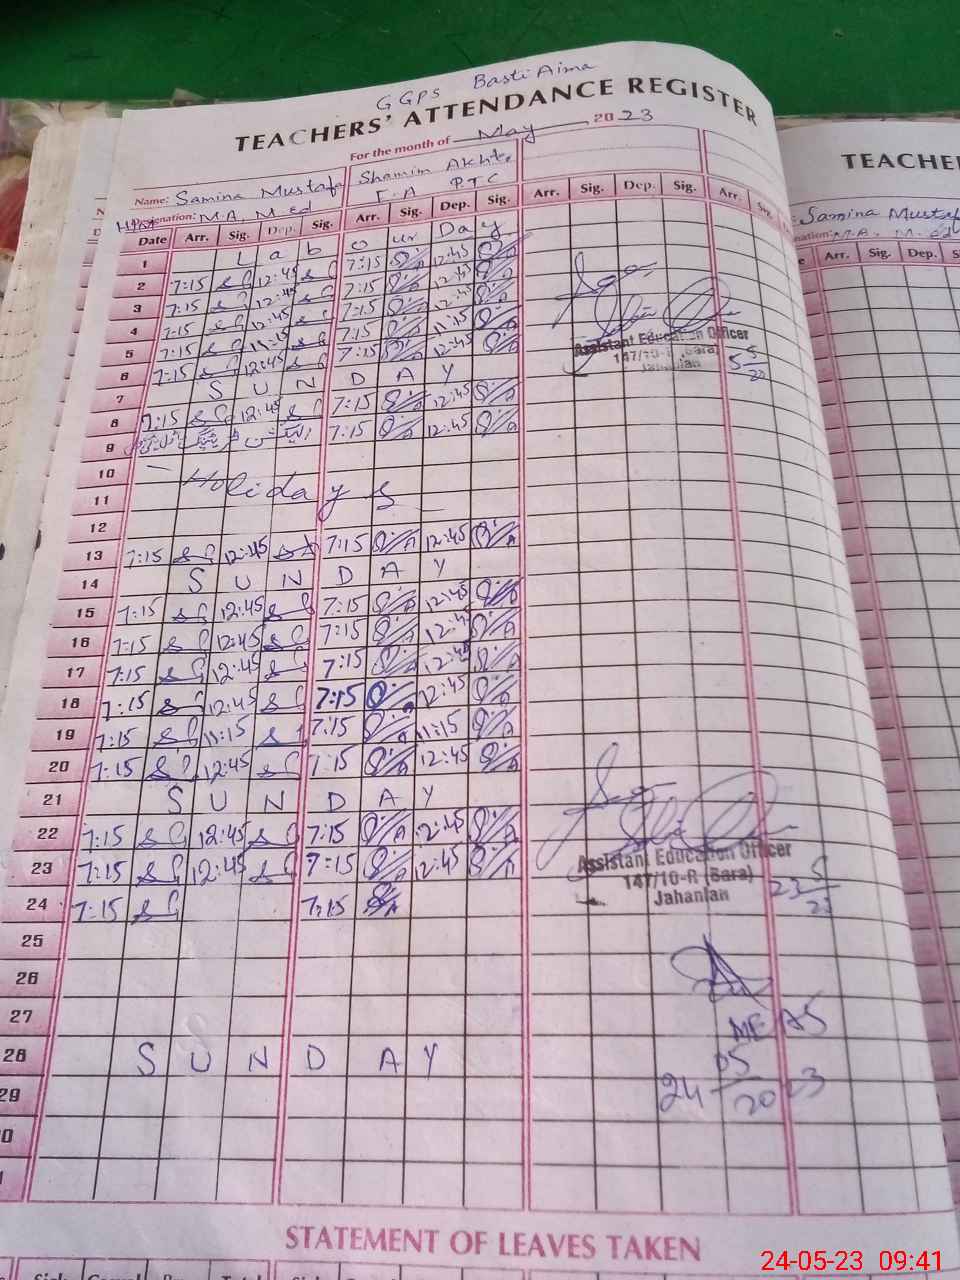 GGPS Basti Aima
TEACHERS' ATTENDANCE REGISTER
For the month of May 2023
Name: Samina Mustafa Shamim Akhter
Designation: M.A, M.ed F.A PTC
Date Arr. Sig. Dep. Sig. Arr. Sig. Dep. Sig. Arr. Sig. Dep. Sig. Arr. Sig.
1 Labour Day
2 7:15 12:45 7:15 12:45
3 7:15 12:45 7:15 12:45
4 7:15 12:45 7:15 12:45
5 7:15 11:15 7:15 11:15
6 7:15 12:45 7:15 12:45
7 SUNDAY
8 7:15 12:45 7:15 12:45
9 7:15 12:45
10
11 Holidays
12
13 7:15 12:45 7:15 12:45
14 SUNDAY
15 7:15 12:45 7:15 12:45
16 7:15 12:45 7:15 12:45
17 7:15 12:45 7:15 12:45
18 7:15 12:45 7:15 12:45
19 7:15 11:15 7:15 11:15
20 7:15 12:45 7:15 12:45
21 SUNDAY
22 7:15 12:45 7:15 12:45
23 7:15 12:45 7:15 12:45
24 7:15 7:15
25
26
27
28 SUNDAY
29
Assistant Education Officer
147/10-R (Sara)
Jahanian
Assistant Education Officer
147/10-R (Sara)
Jahanian
23 5
23
MEA
24 05
2023
STATEMENT OF LEAVES TAKEN
TEACHE
Samina Mustaf
M.A, M.ed
Arr. Sig. Dep. S
24-05-23 09:41